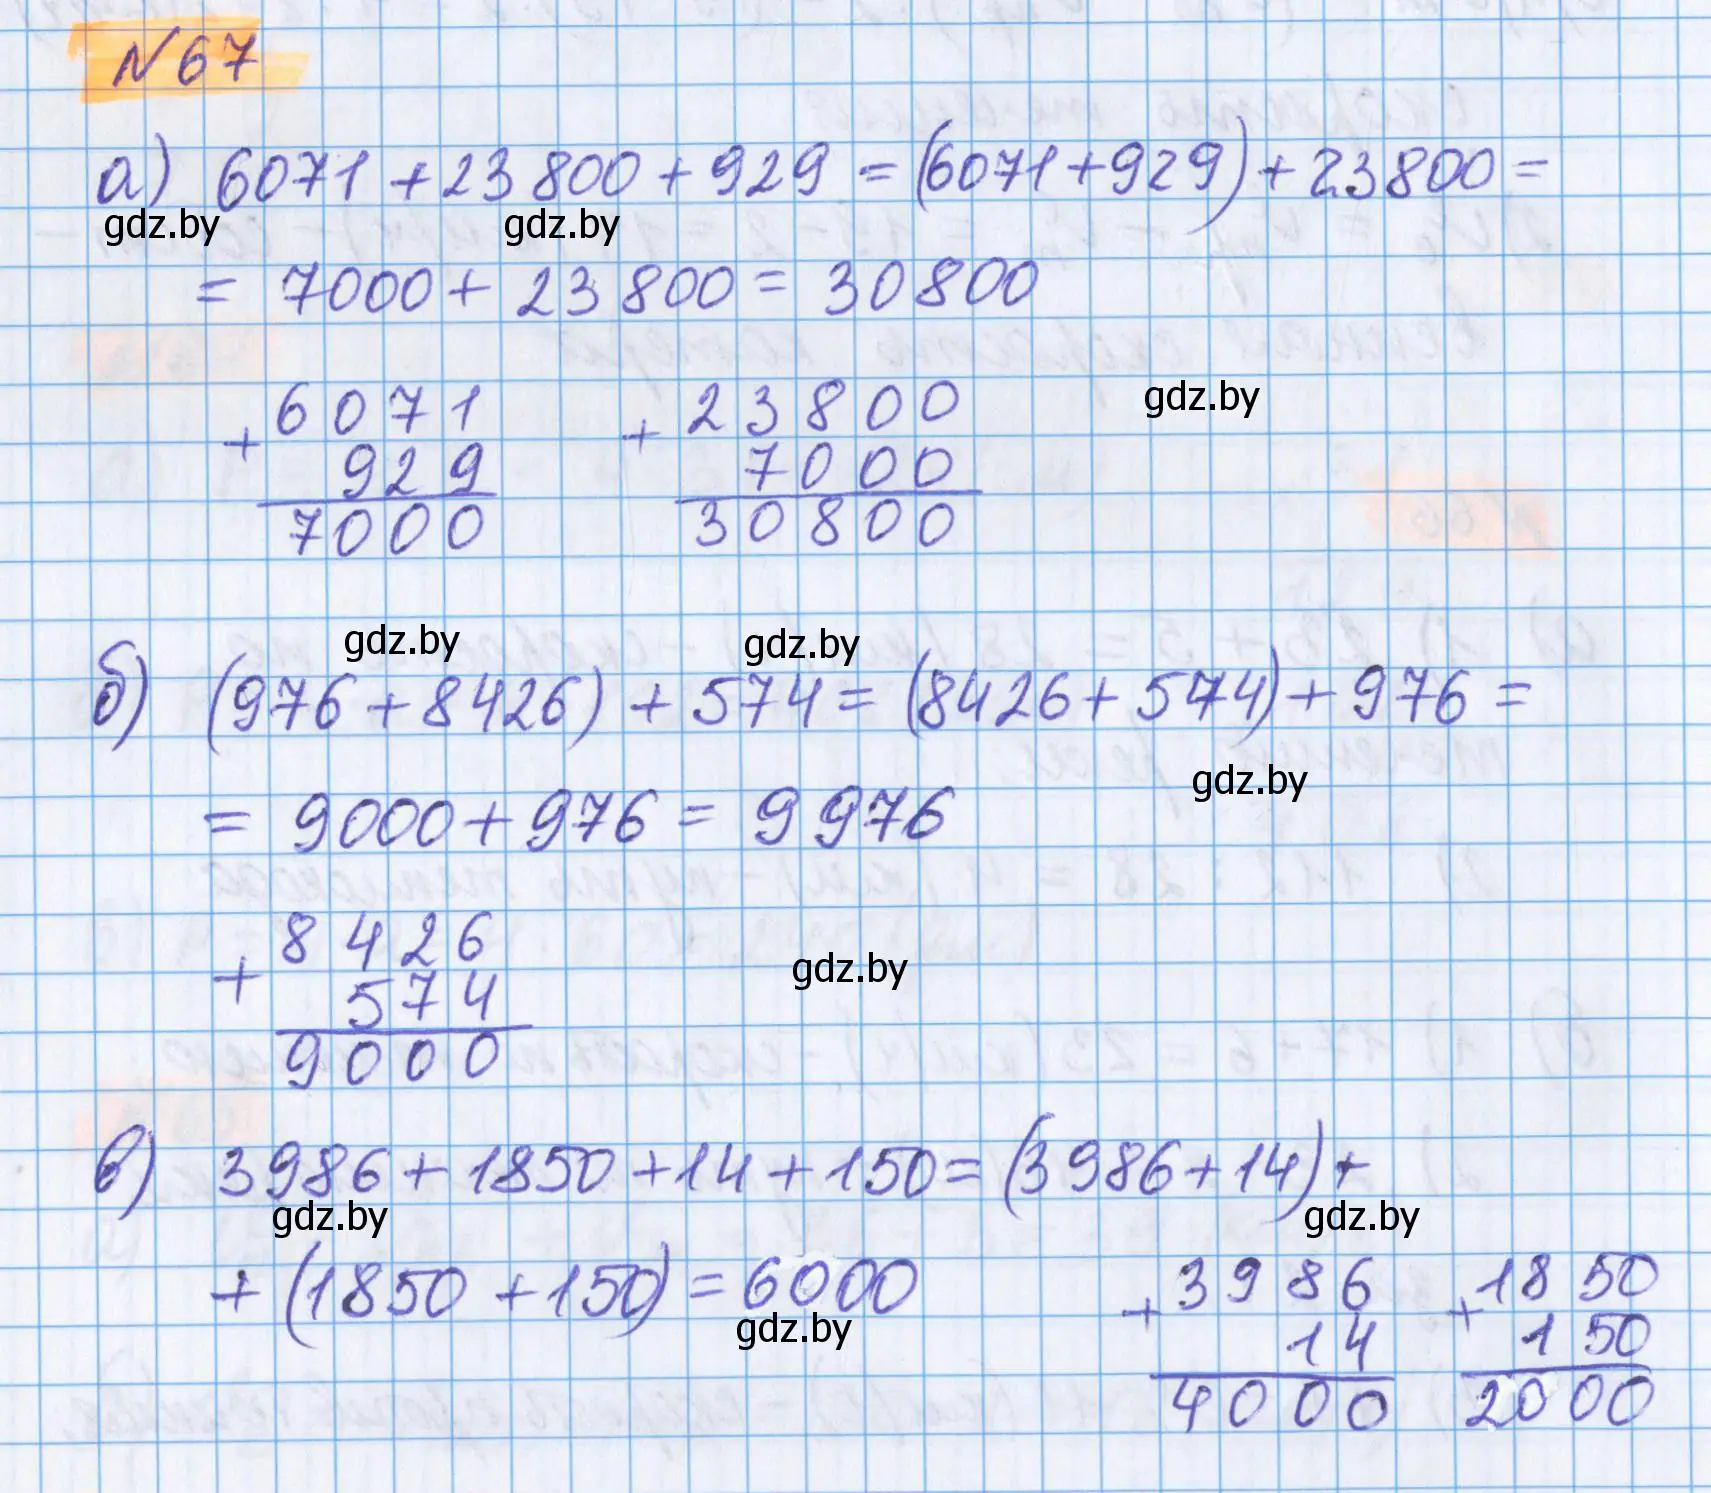 №67
а) 6071+23800+929=(6071+929)+23800=
gdz.by gdz.by
= 7000+23800=30800
gdz.by
+ 6071
929
7000
+ 23800
7000
30800
gdz.by gdz.by
б) (976+8426)+574=(8426+574)+976=
gdz.by
= 9000+976=9976
+ 8426
574
9000
gdz.by
в) 3986+1850+14+150=(3986+14)+
gdz.by gdz.by
+(1850+150)=6000
gdz.by
+ 3986
14
4000
+ 1850
150
2000